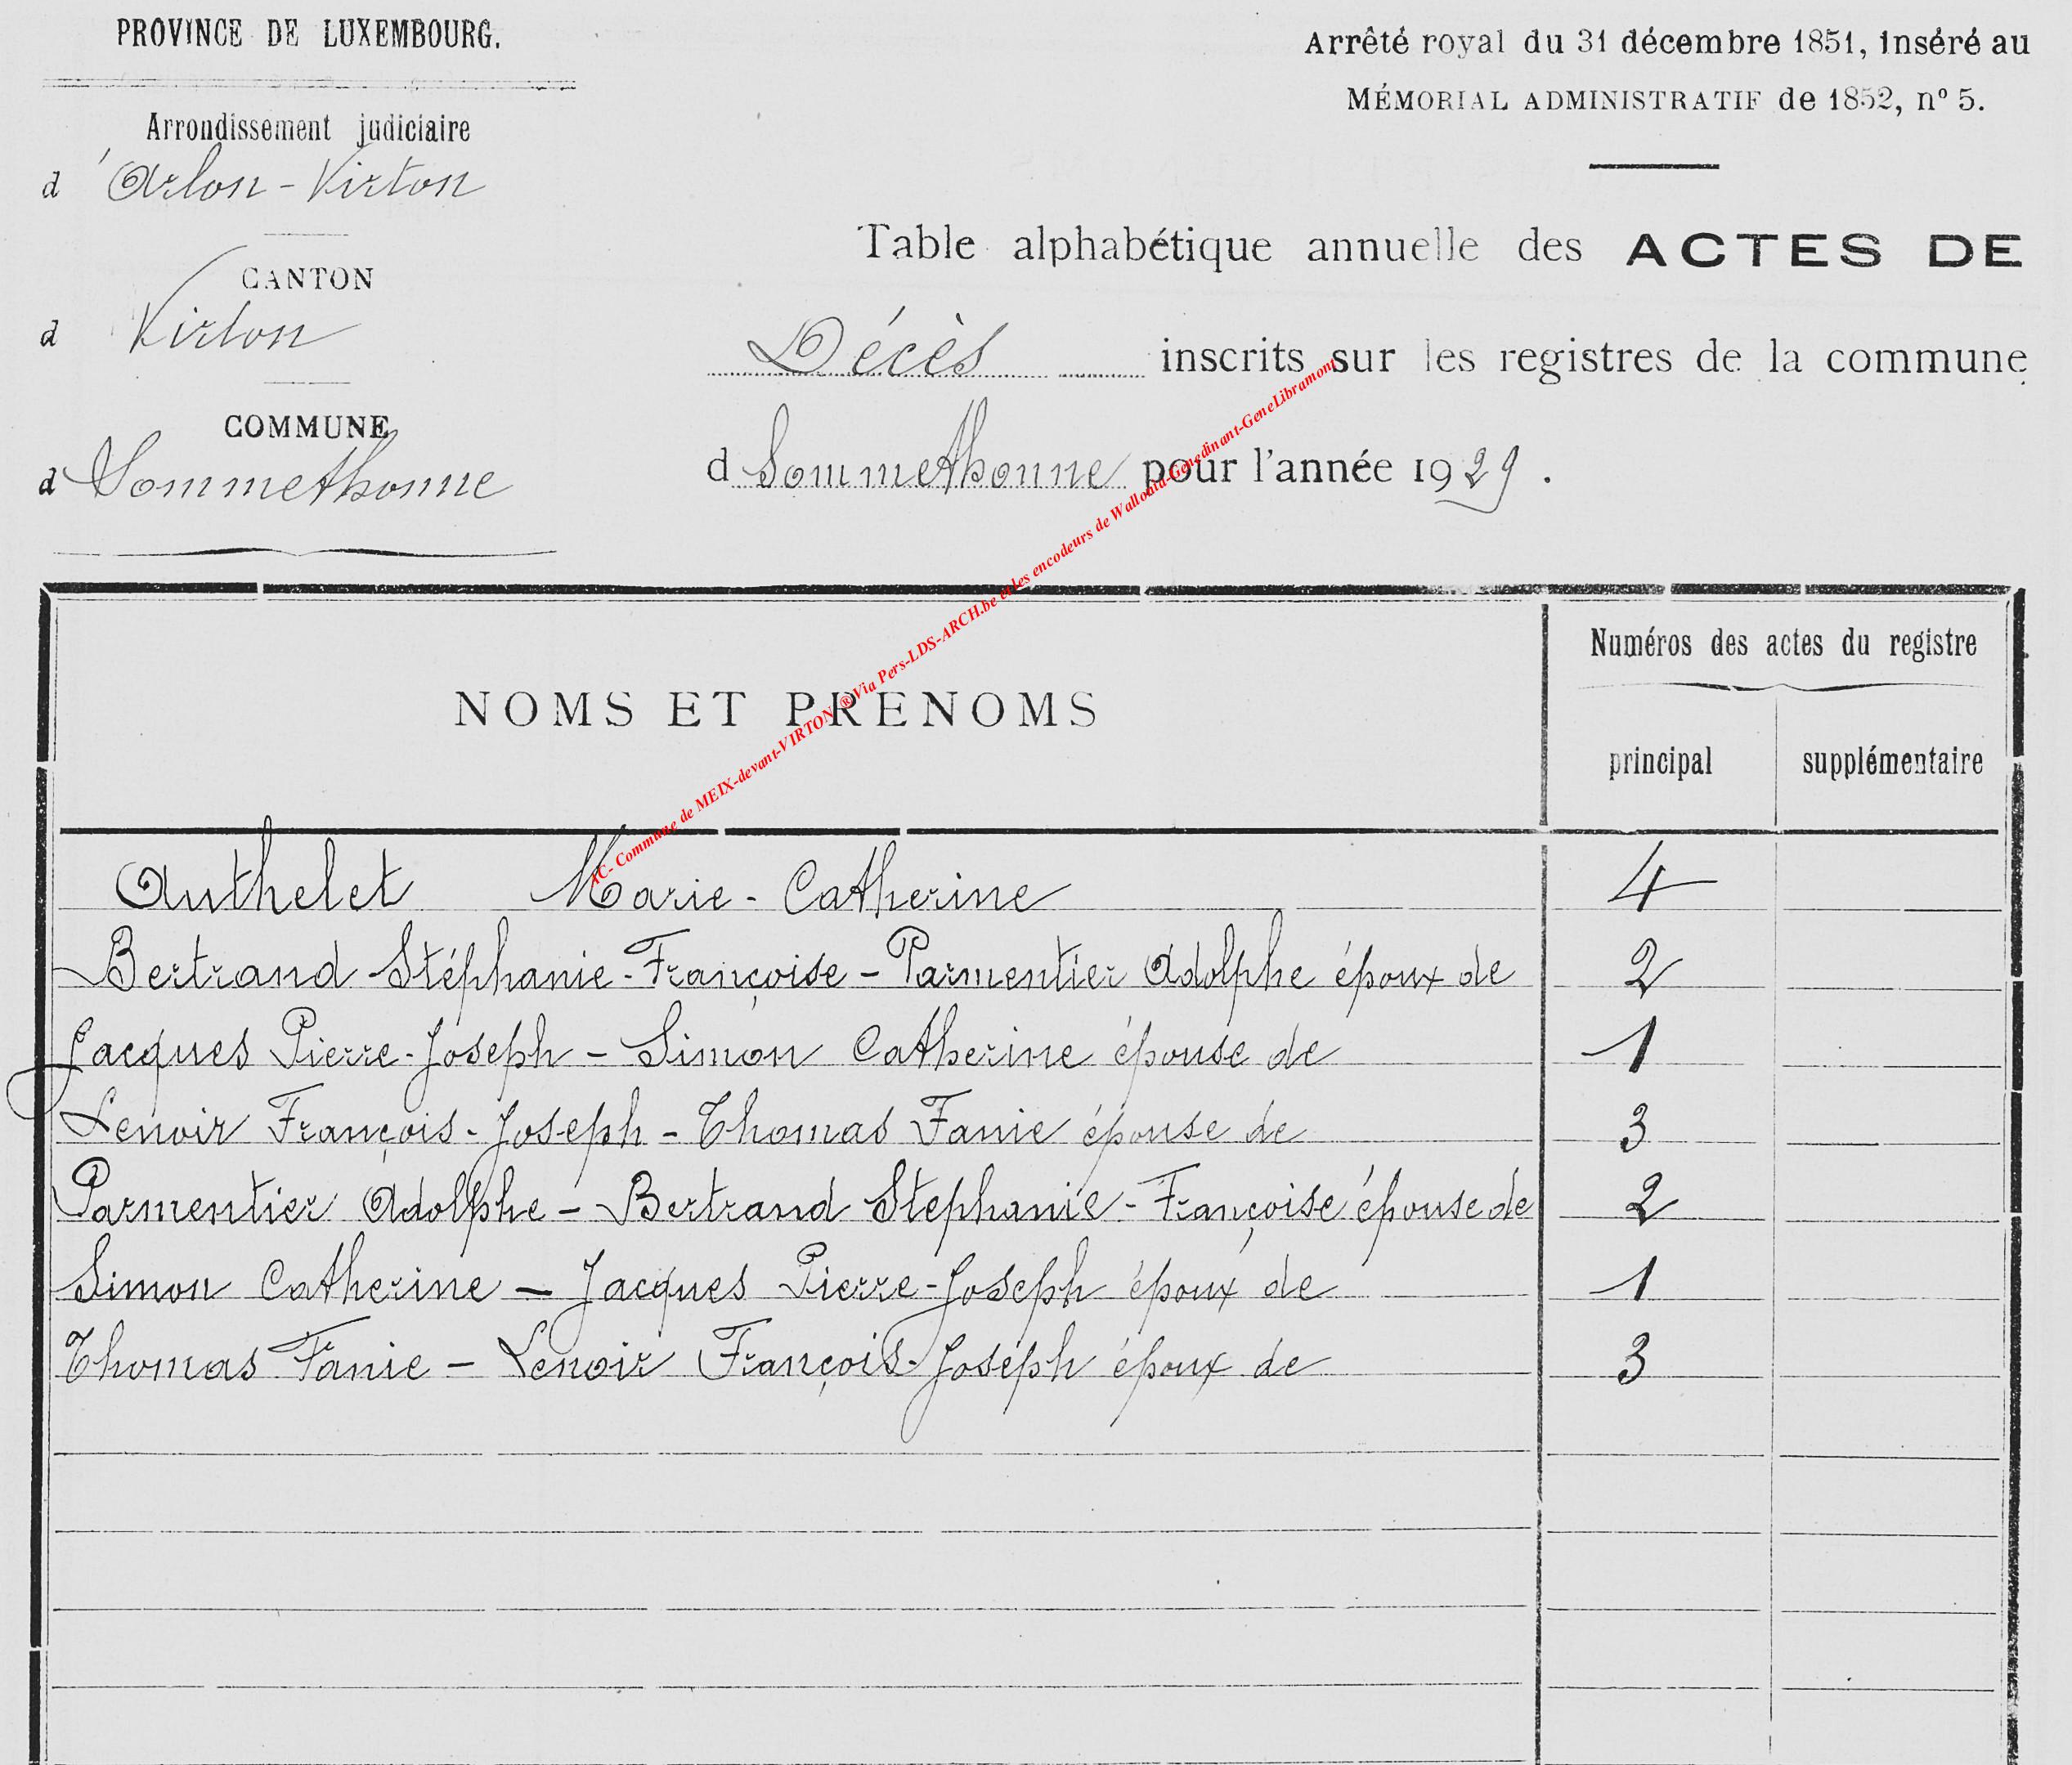 PROVINCE DE LUXEMBOURG.
Arrondissement judiciaire
d'Arlon-Virton
CANTON
d Virton
COMMUNE
d Sommethonne
Arrêté royal du 31 décembre 1851, inséré au
MÉMORIAL ADMINISTRATIF de 1852, n° 5.
Table alphabétique annuelle des ACTES DE
Décès inscrits sur les registres de la commune
d Sommethonne pour l'année 1929.
AC- Commune de MEIX-devant-VIRTON ® Via Pers-LDS-ARCH.be et les encodeurs de Wallonia-Genedinant-GeneLibramont
NOMS ET PRENOMS
Numéros des actes du registre
principal supplémentaire
Authelet Marie-Catherine 4
Bertrand Stéphanie-Françoise - Parmentier Adolphe époux de 2
Jacques Pierre-Joseph - Simon Catherine épouse de 1
Lenoir François-Joseph - Thomas Fanie épouse de 3
Parmentier Adolphe - Bertrand Stéphanie-Françoise épouse de 2
Simon Catherine - Jacques Pierre-Joseph époux de 1
Thomas Fanie - Lenoir François-Joseph époux de 3